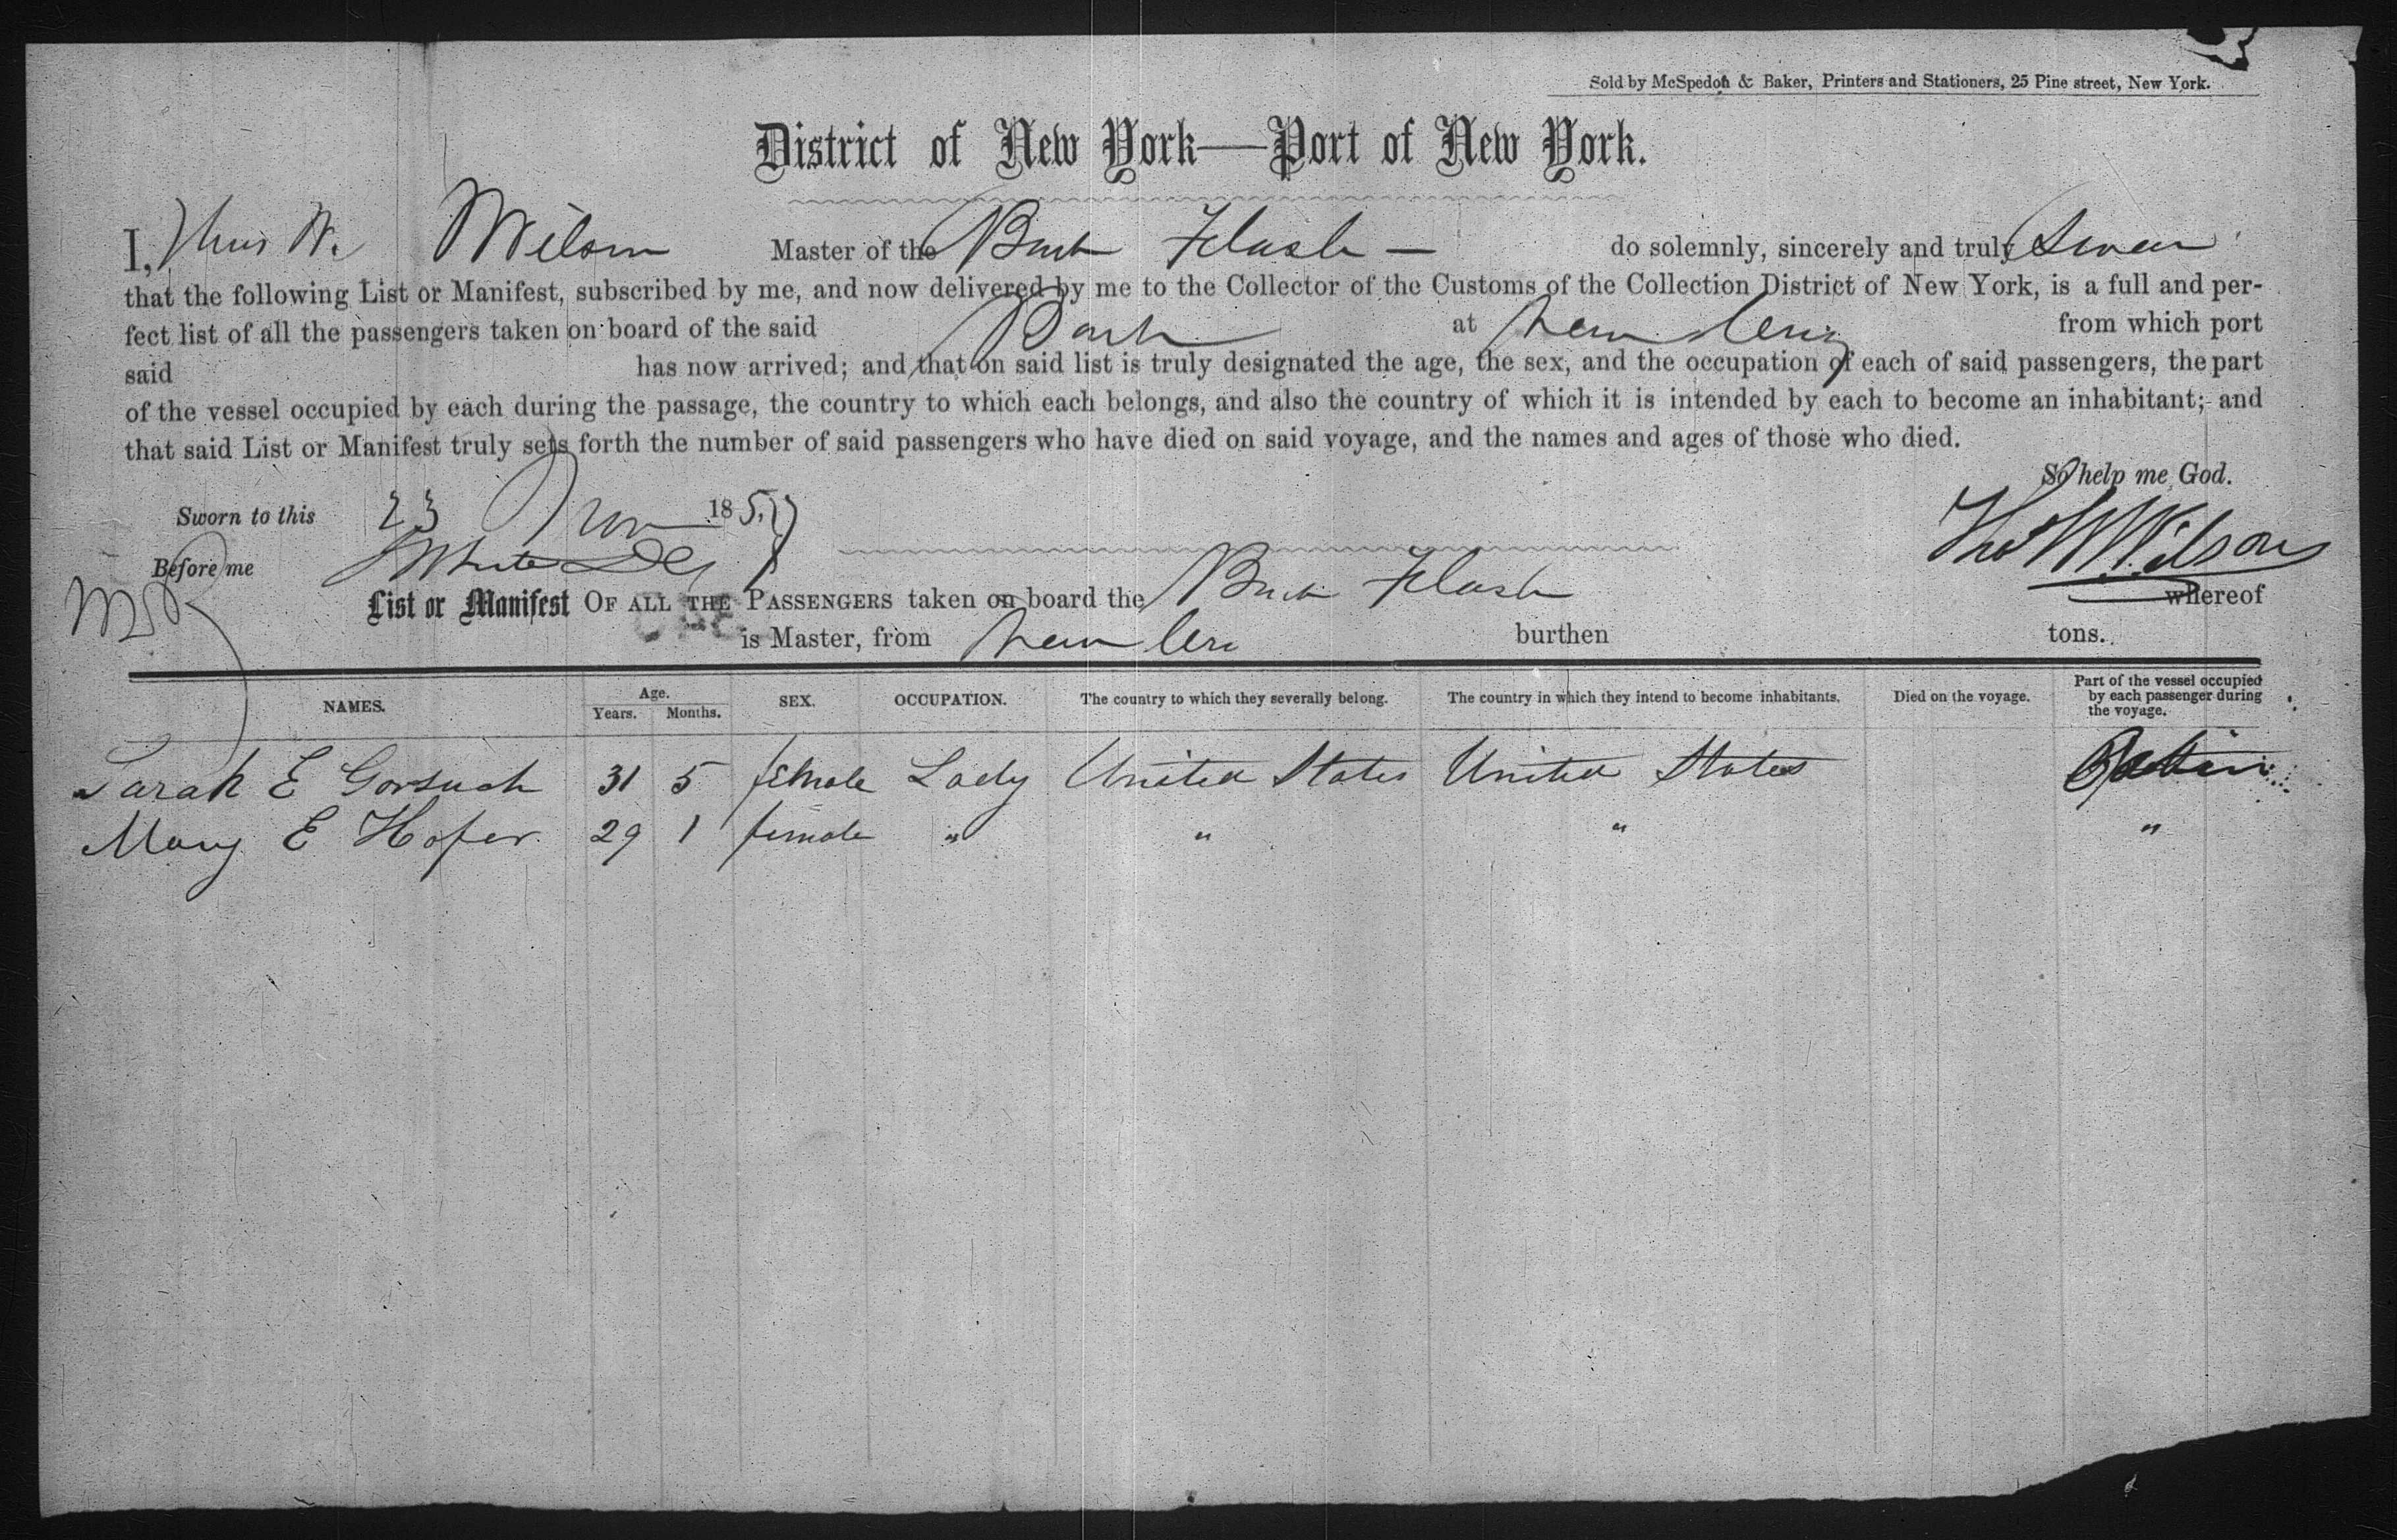 Sold by McSpedon & Baker, Printers and Stationers, 25 Pine street, New York.
District of New York—Port of New York.
I, Thos W. Wilson Master of the Bark Flash — do solemnly, sincerely and truly Swear
that the following List or Manifest, subscribed by me, and now delivered by me to the Collector of the Customs of the Collection District of New York, is a full and per-
fect list of all the passengers taken on board of the said Bark at from which port
said has now arrived; and that on said list is truly designated the age, the sex, and the occupation of each of said passengers, the part
of the vessel occupied by each during the passage, the country to which each belongs, and also the country of which it is intended by each to become an inhabitant; and
that said List or Manifest truly sets forth the number of said passengers who have died on said voyage, and the names and ages of those who died.
So help me God.
Sworn to this 23 Nov 1857
Thos W. Wilson
Before me White
List or Manifest OF ALL THE PASSENGERS taken on board the Bark Flash whereof
is Master, from burthen tons.
NAMES. Age. Years. Months. SEX. OCCUPATION. The country to which they severally belong. The country in which they intend to become inhabitants. Died on the voyage. Part of the vessel occupied by each passenger during the voyage.
Sarah E Gorsuch 31 5 female Lady United States United States Cabin
Mary E Hofer 29 1 female " " " "